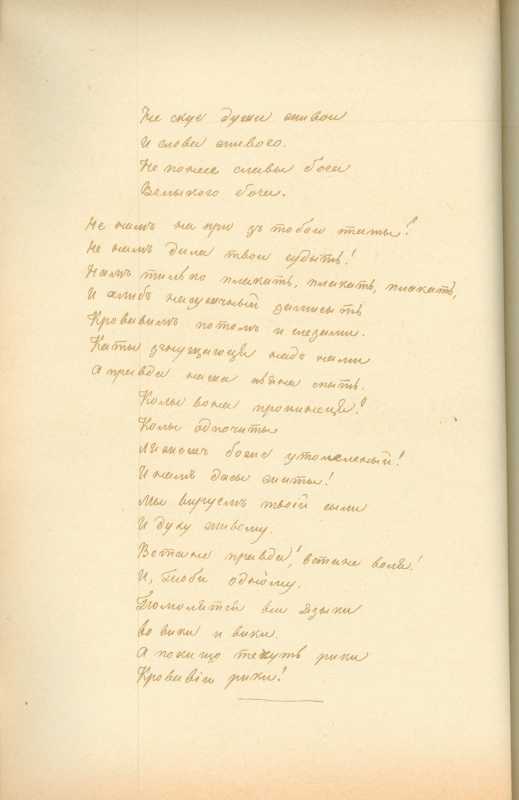 Не скує души живои
И слова живого.
Не понесе славы бога
Велыкого бога.
Не намъ на прю зъ тобою статы!
Не намъ дила твои судыть!
Намъ тилько плакать, плакать, плакать,
И хлибъ насущный замисыть
Кровавымъ потомъ и слезами.
Каты знущаюця надъ нами
А правда наша пьяна спыть.
Колы вона прокинеця!
Колы одпочиты
Ляжешъ боже утомленый!
И намъ дасы жыты!
Мы вируемъ твоій сыли
И духу живому.
Встане правда! встане воля!
И, Тоби одному.
Помолятся вси языки
во вики и вики.
А покищо течуть рики
Кровавіи рики!